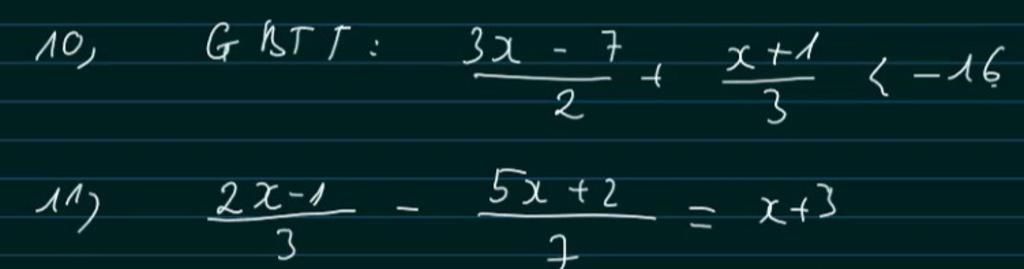 10, GBTT: \frac{3x - 7}{2} + \frac{x+1}{3} < -16
11) \frac{2x-1}{3} - \frac{5x+2}{7} = x+3